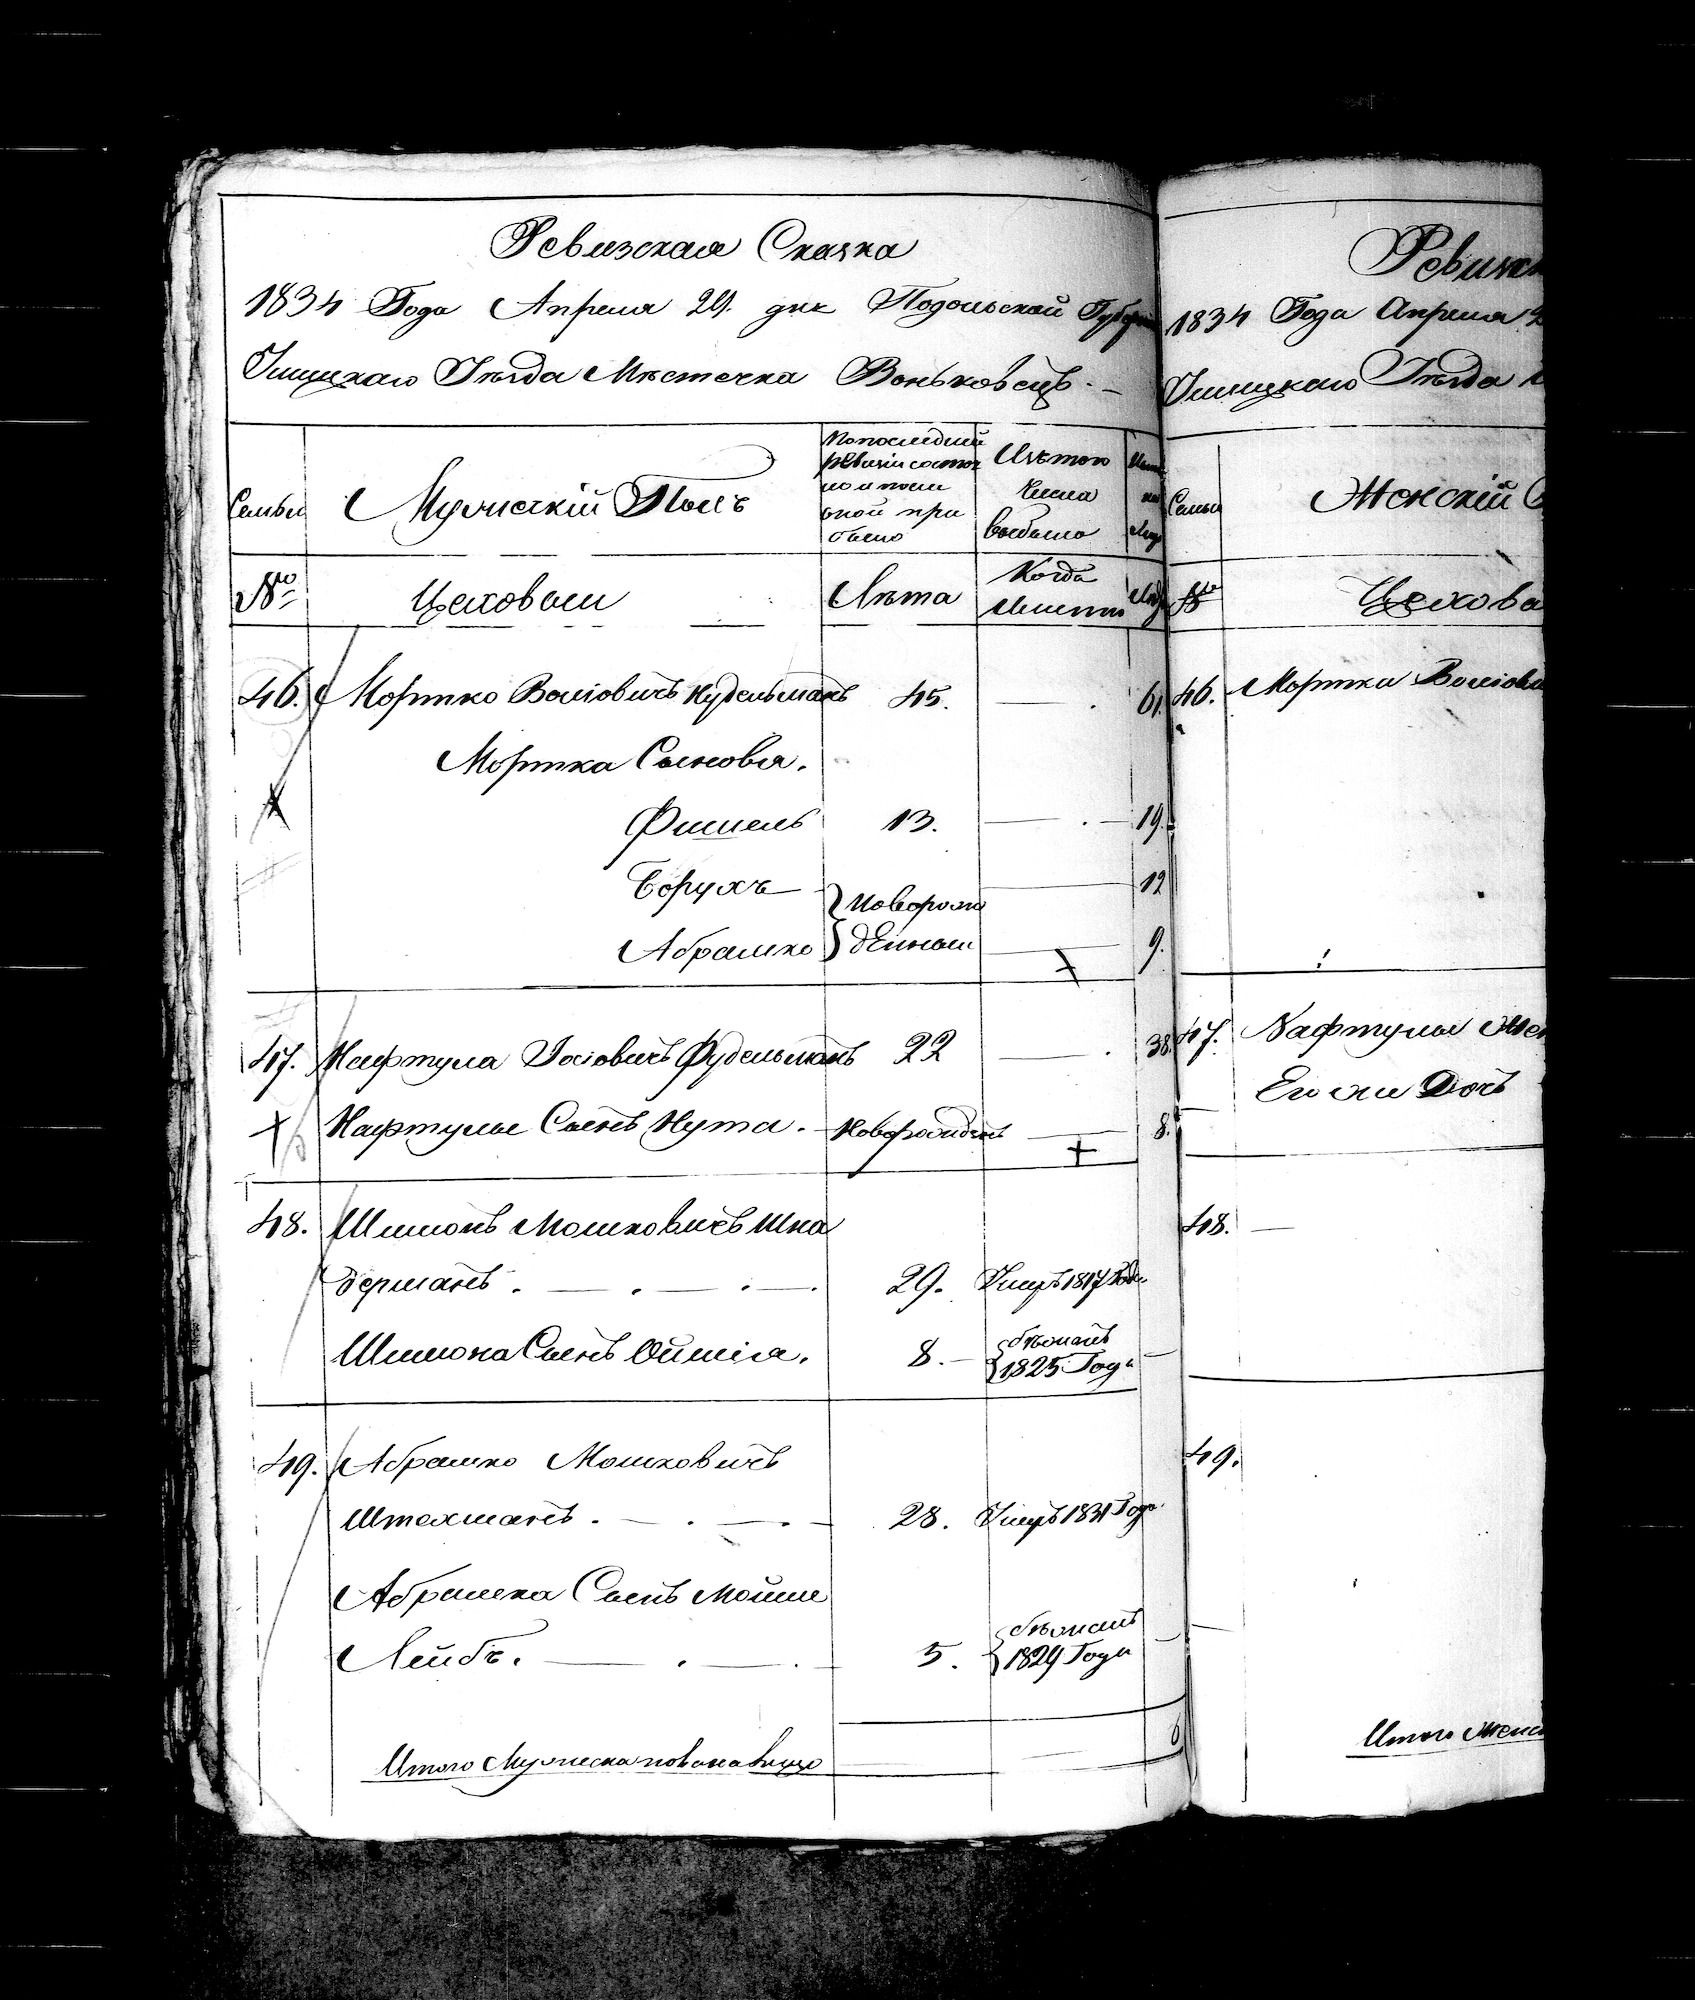 Ревизская Сказка
1834 Года Апреля 29. дня Подольской Губерн
Ушицкаго Уѣзда Мѣстечка Воньковецъ. —
Семьи
Мужескій Полъ
По последней
ревизіи состоя
ло и после
оной при
было
Изъ того
числа
выбыло
№
Цеховыи
Лѣта
Когда
Именно
46. Мортко Волковичъ Нудельманъ 45. — . 61.
Мортка Сыновья.
Фишель 13. — . — 19.
Борухъ — 12
Новорож
Абрашко денныи — 9.
47. Нафтула Іосіовичъ Фудельманъ 22 — . 38.
Нафтулы Сынъ Нута. — Новорожденъ — 8.
48. Шимонъ Мошковичъ Шна
берманъ . — . — . — . 29. Умеръ 1817 Года
Шимона Сынъ Ойшіа. 8. — бѣжалъ
1825 Года —
49. Абрашко Мошковичъ
Штехманъ . — . — . — 28. Умеръ 1831 Года.
Абрашка Сынъ Мойше
Лейбъ. — . — . — 5. бѣжалъ
1829 Года —
Итого Мужеска пола на лицо — 6
1834 Года Апреля 2
Ушицкаго Уѣзда
Семьи
Женскій
№
46. Мортка
47. Нафтулы
Его же Дочь
48. —
49.
Итого